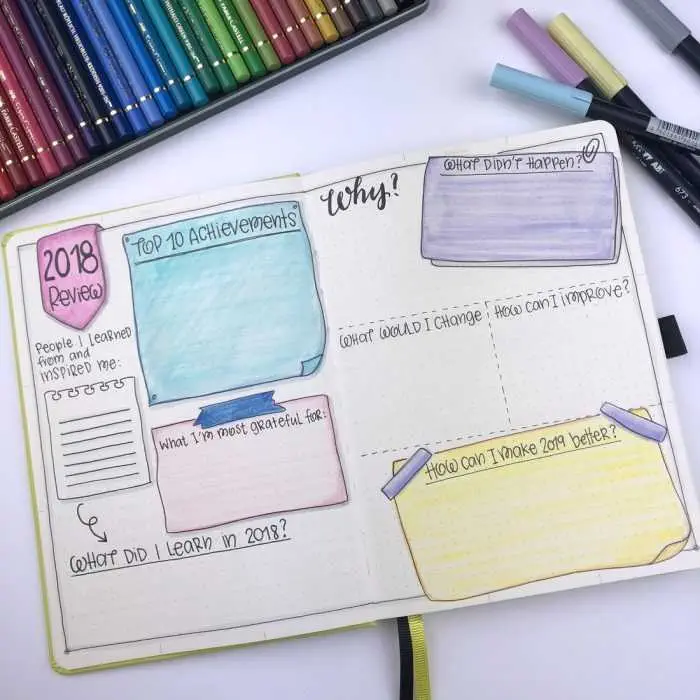 2018
Review
TOP 10 ACHiEVEMENTS
People I LEARNED
from and
iNSPiRED ME:
What I'm most grateful for:
WHAT DiD I LEARN iN 2018?
Why?
WHAT DiDN'T HAPPEN?
WHAT WOULD I CHANGE
HOW CAN I iMPROVE?
HOW CAN I MAKE 2019 BETTER?
FABER-CASTELL
673